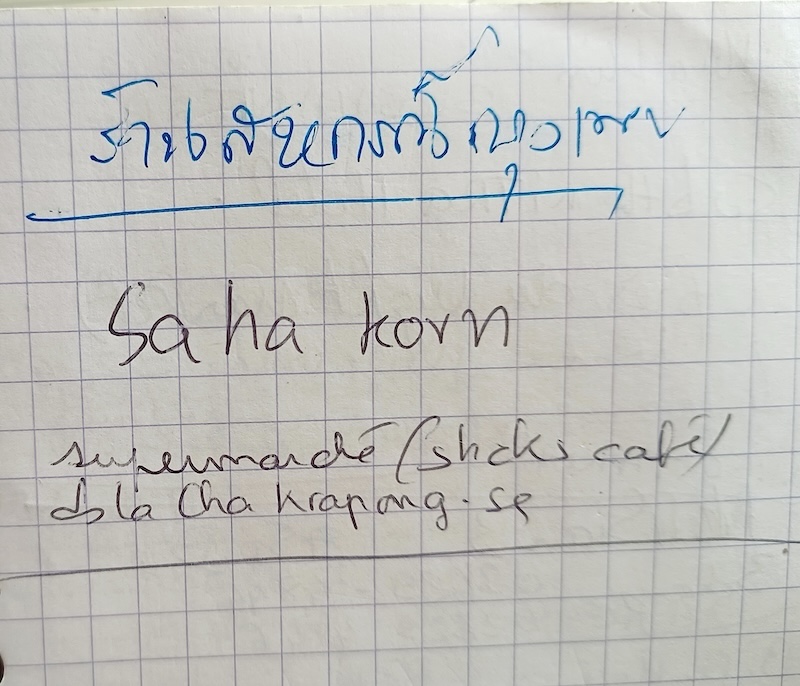 ร้านสหกรณ์กรุงเทพ
Saha korn
supermarché (sticks café)
ds la Chakrapong. se